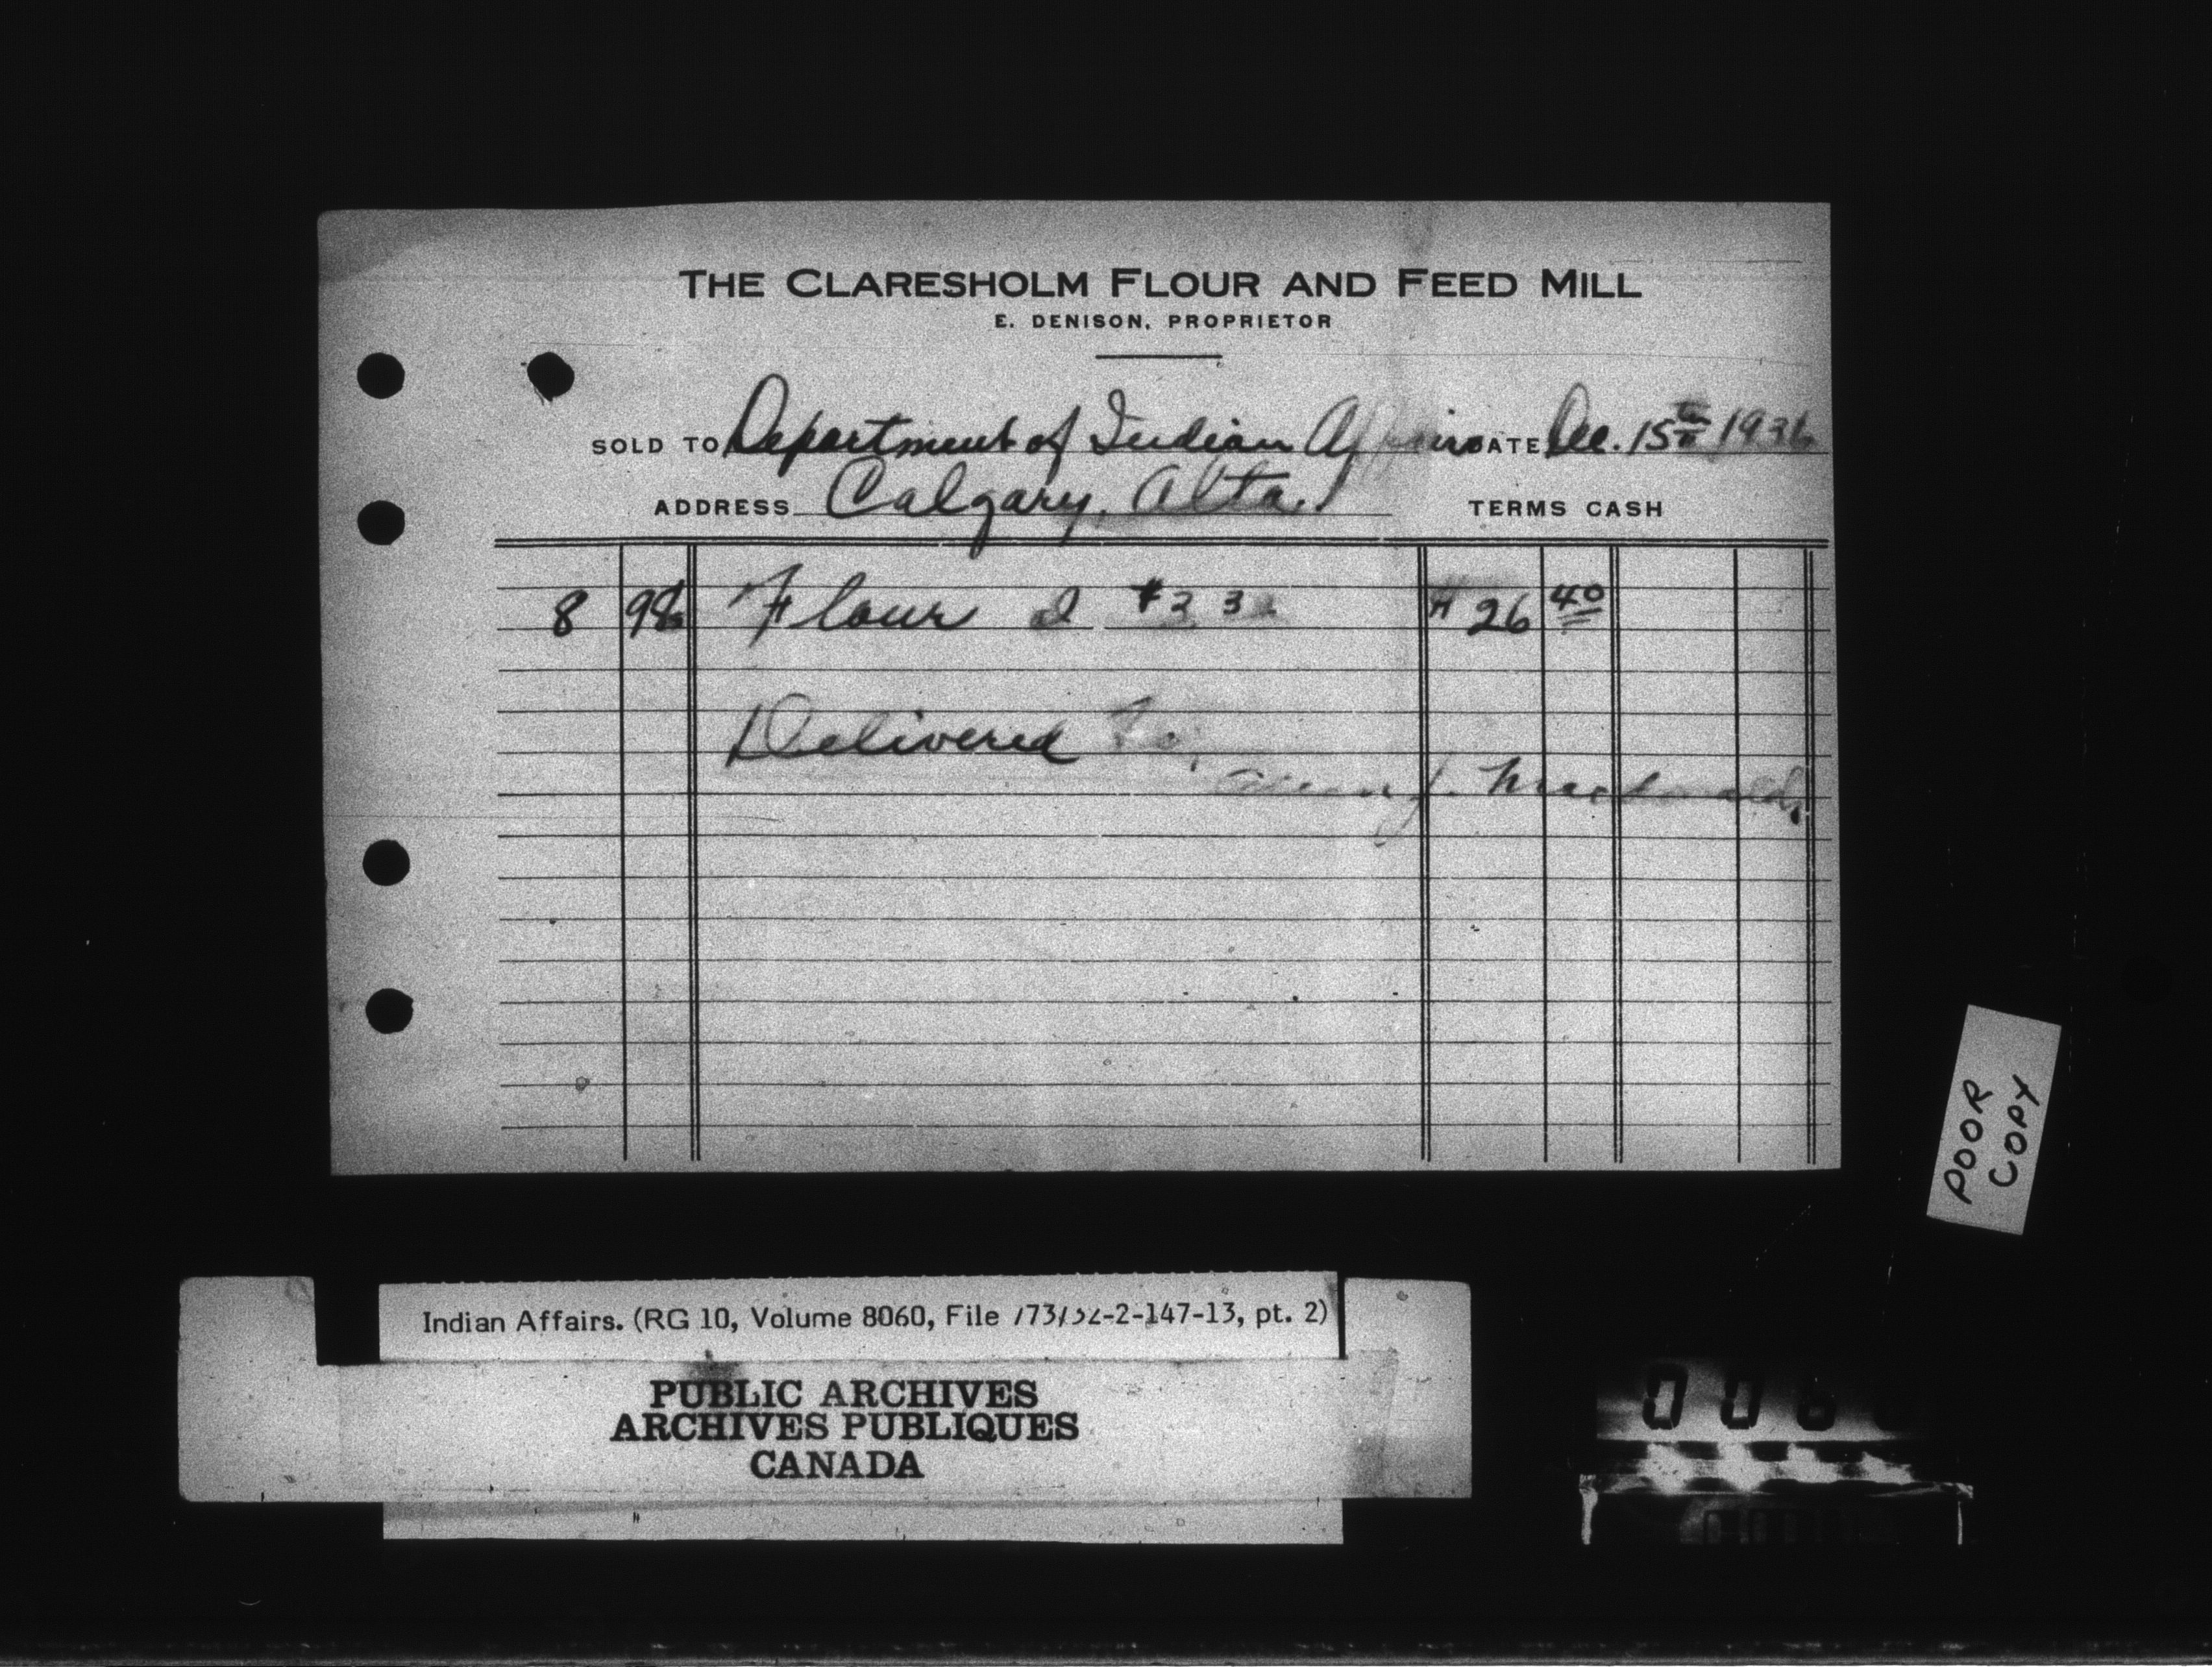 THE CLARESHOLM FLOUR AND FEED MILL
E. DENISON, PROPRIETOR
SOLD TO Department of Indian Affairs DATE Dec. 15th 1936
ADDRESS Calgary, Alta. TERMS CASH
8 98s Flour @ $3 30 $26 40
Delivered To,
J. Macdonald,
POOR
COPY
Indian Affairs. (RG 10, Volume 8060, File 773/32-2-147-13, pt. 2)
PUBLIC ARCHIVES
ARCHIVES PUBLIQUES
CANADA